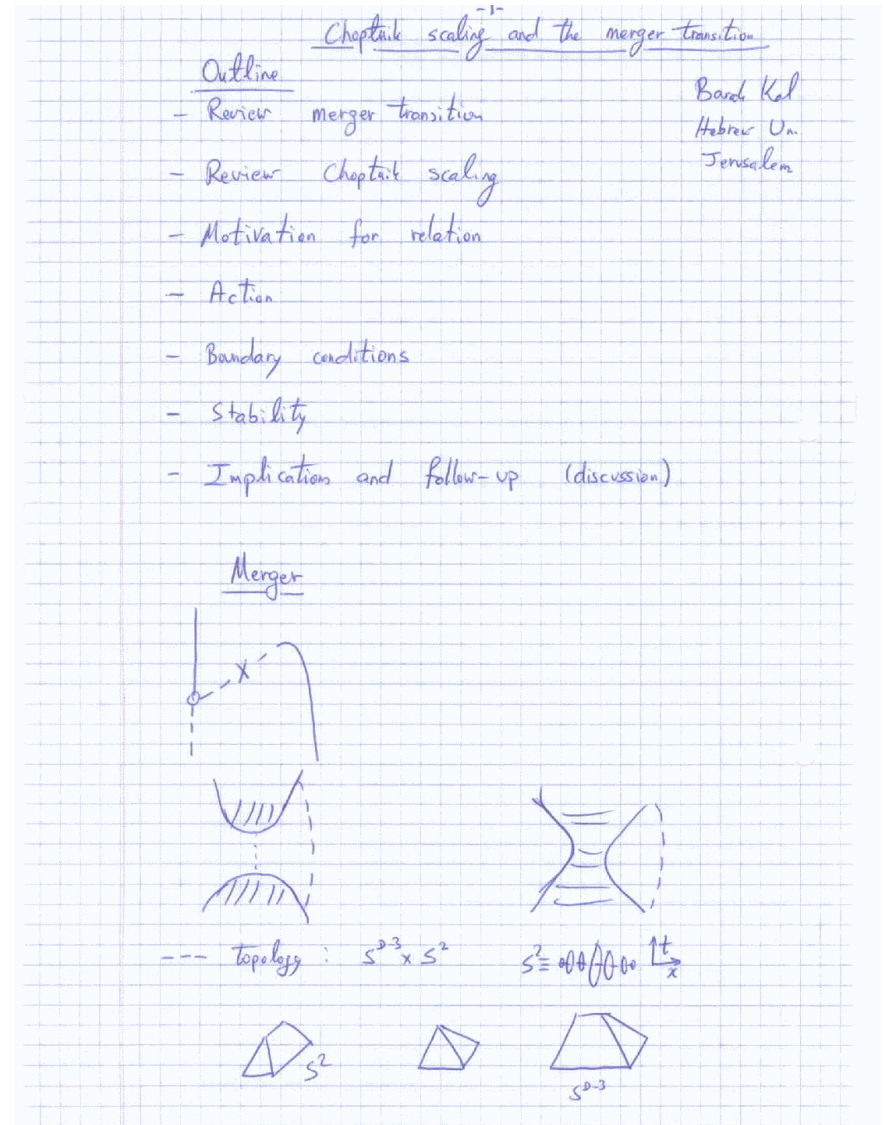 -1-
Choptuik scaling and the merger transition
Outline
Barak Kol
Hebrew Un.
Jerusalem
- Review merger transition
- Review Choptuik scaling
- Motivation for relation
- Action
- Boundary conditions
- Stability
- Implications and follow-up (discussion)
Merger
x
--- topology : S^{D-3} x S^2
S^2 ≡
t
x
S^2
S^{D-3}